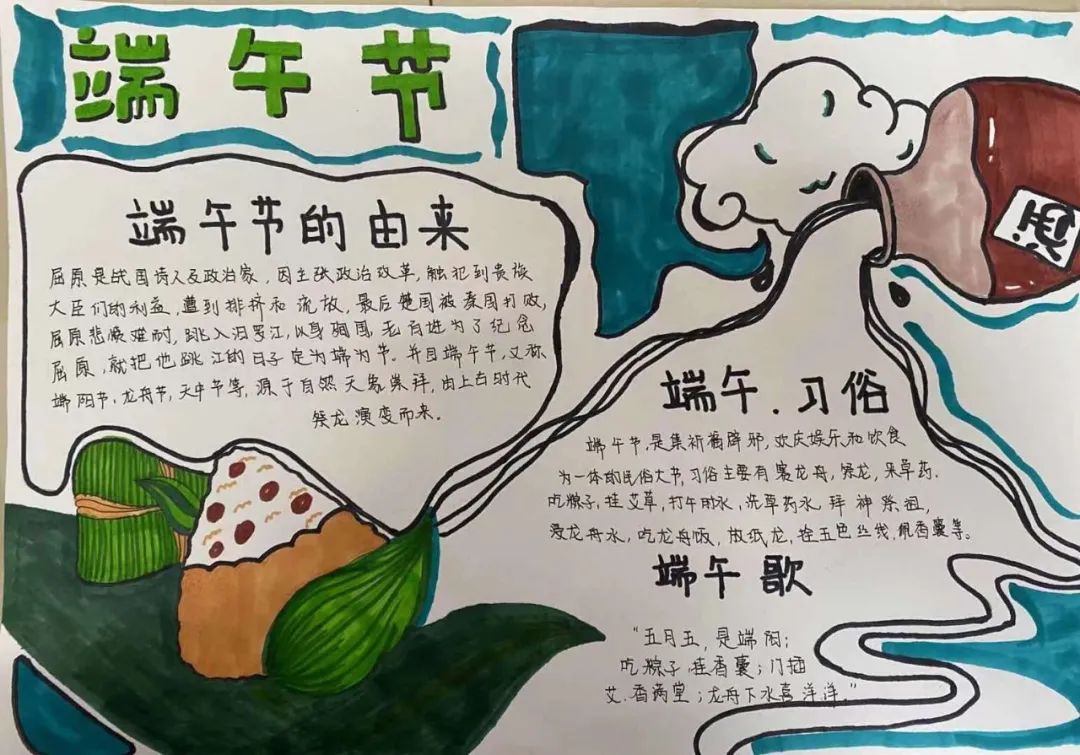 端午节
端午节的由来
屈原是战国诗人及政治家，因主张政治改革，触犯到贵族
大臣们的利益，遭到排挤和流放，最后楚国被秦国打败，
屈原悲愤难耐，跳入汨罗江，以身殉国，后者进为了纪念
屈原，就把他跳江的日子定为端为节。并且端午节，又称
端阳节，龙舟节，天中节等，源于自然天象崇拜，由上古时代
祭龙演变而来。
酒
端午.习俗
端午节，是集祈福辟邪，欢庆娱乐和饮食
为一体的民俗大节，习俗主要有赛龙舟，祭龙，采草药，
吃粽子，挂艾草，打午时水，洗草药水，拜神祭祖，
浸龙舟水，吃龙舟饭，放纸龙，拴五色丝线，佩香囊等。
端午歌
“五月五，是端阳；
吃粽子，挂香囊；门插
艾.香满堂；龙舟下水喜洋洋。”